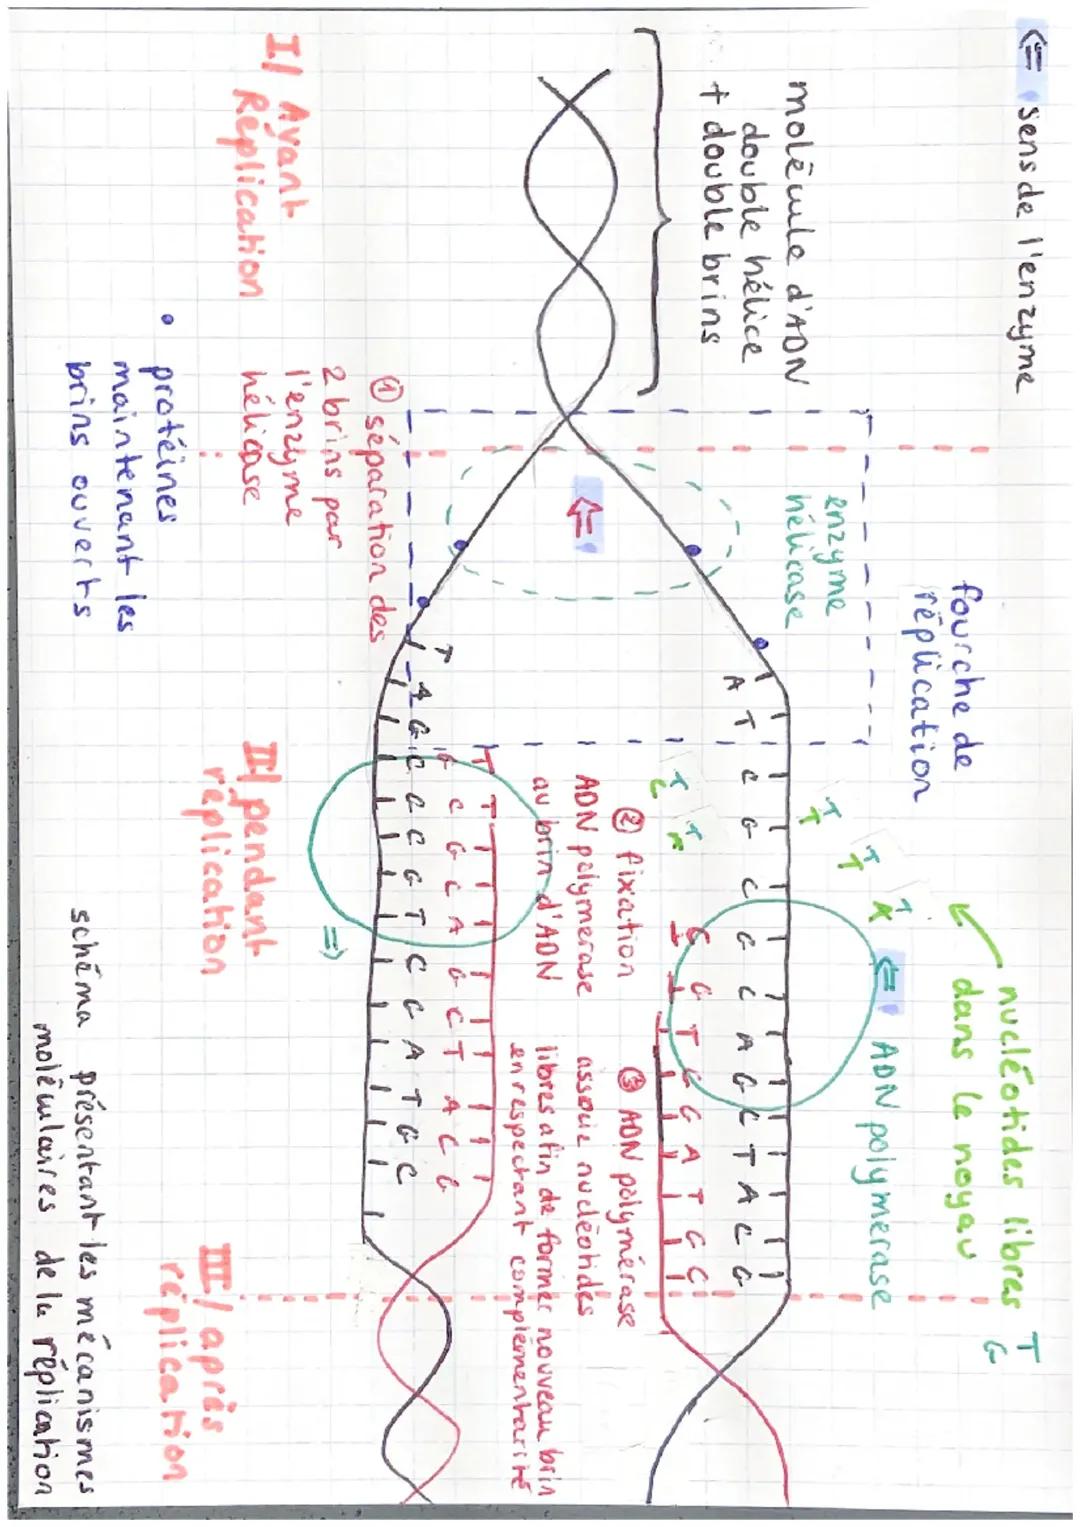 ⇐ sens de l'enzyme
molécule d'ADN
double hélice
+ double brins
fourche de
réplication
enzyme
hélicase
nucléotides libres
dans le noyau
T
G
ADN polymerase
A T C G C G C A G C T A C G
G G T C G A T G C
② fixation
ADN polymerase
au brin d'ADN
③ ADN polymérase
associe nucléotides
libres afin de former nouveau brin
en respectant complémentarité
T T
G C G C A G C T A C G
T A G C C C G T C G A T G C
① séparation des
2 brins par
l'enzyme
hélicase
I/ Avant
Réplication
II/ pendant
réplication
III/ après
réplication
• protéines
maintenant les
brins ouverts
schéma présentant les mécanismes
moléculaires de la réplication